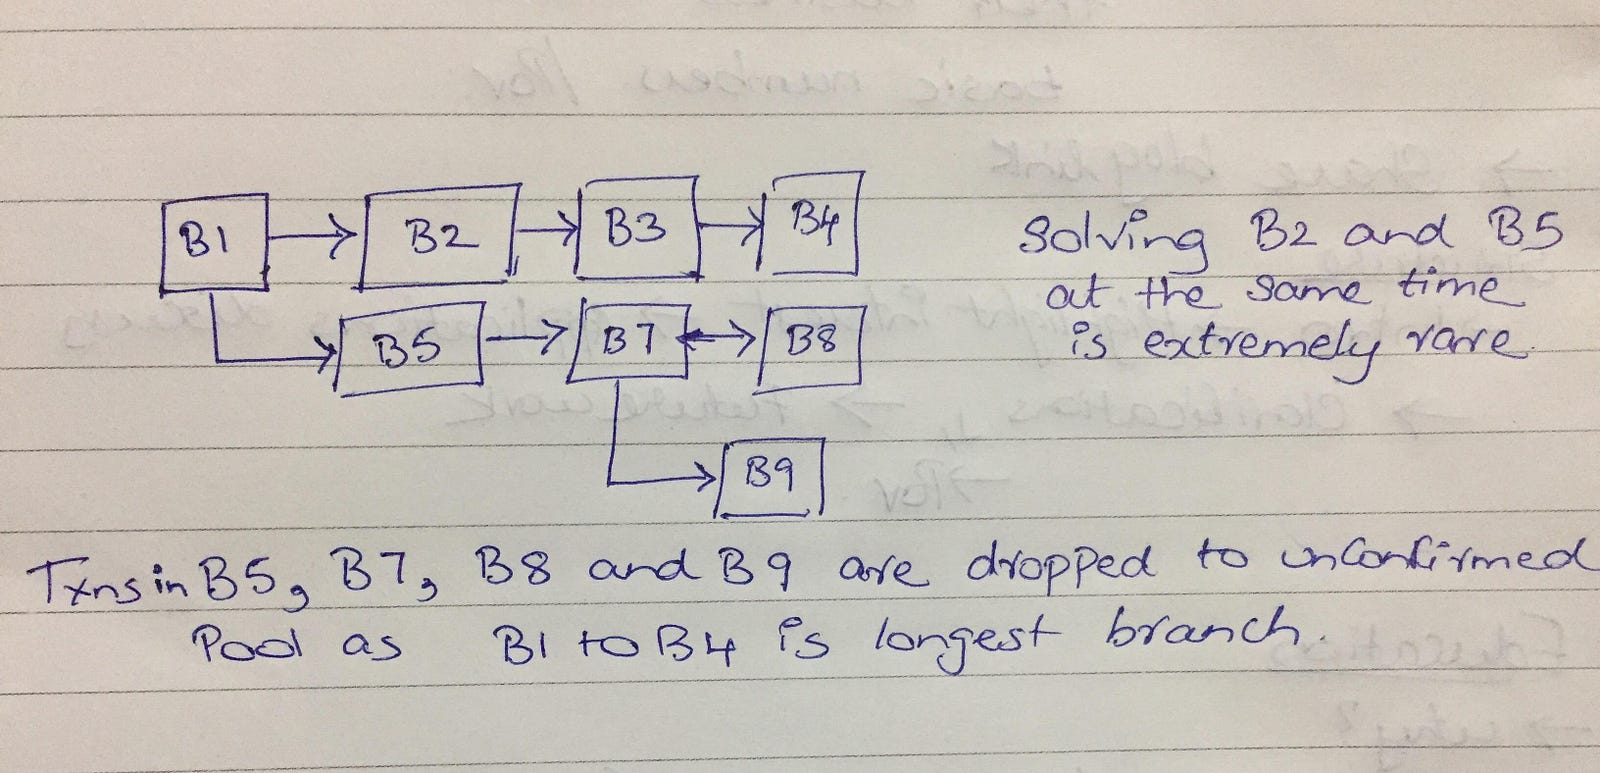 B1 B2 B3 B4
B5 B7 B8
B9
Solving B2 and B5
at the same time
is extremely rare.
Txns in B5, B7, B8 and B9 are dropped to unconfirmed
Pool as B1 to B4 is longest branch.